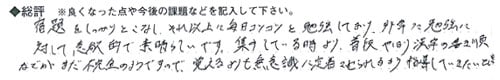 ◆総評 ※良くなった点や今後の課題などを記入して下さい。
宿題をしっかりとこなし、それ以上に毎日コツコツと勉強しており、非常に勉強に
対して意欲的で素晴らしいです。集中している時より、普段やはり漢字の書き順
などがまだ不完全のようですので、覚えるよりも無意識に定着させられるよう指導していきたいな